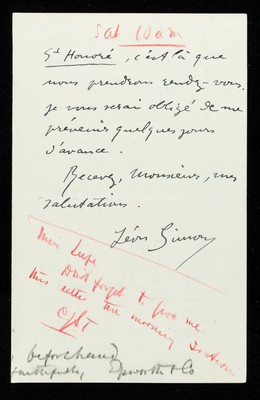 Sat 10 am
St Honoré, c'est là que
nous prendrons rendez-vous.
je vous serai obligé de me
prévenir quelques jours
d'avance.
Recevez, Monsieur, mes
salutations.
Léon
Miss
Don't forget to give me
this letter the morning
beforehand
faithfully, Epworth & Co